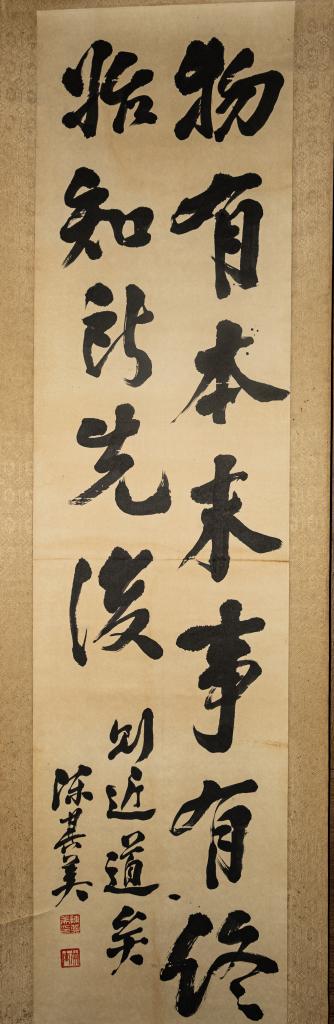 物有本末事有終
始知所先後
則近道矣
陳其美